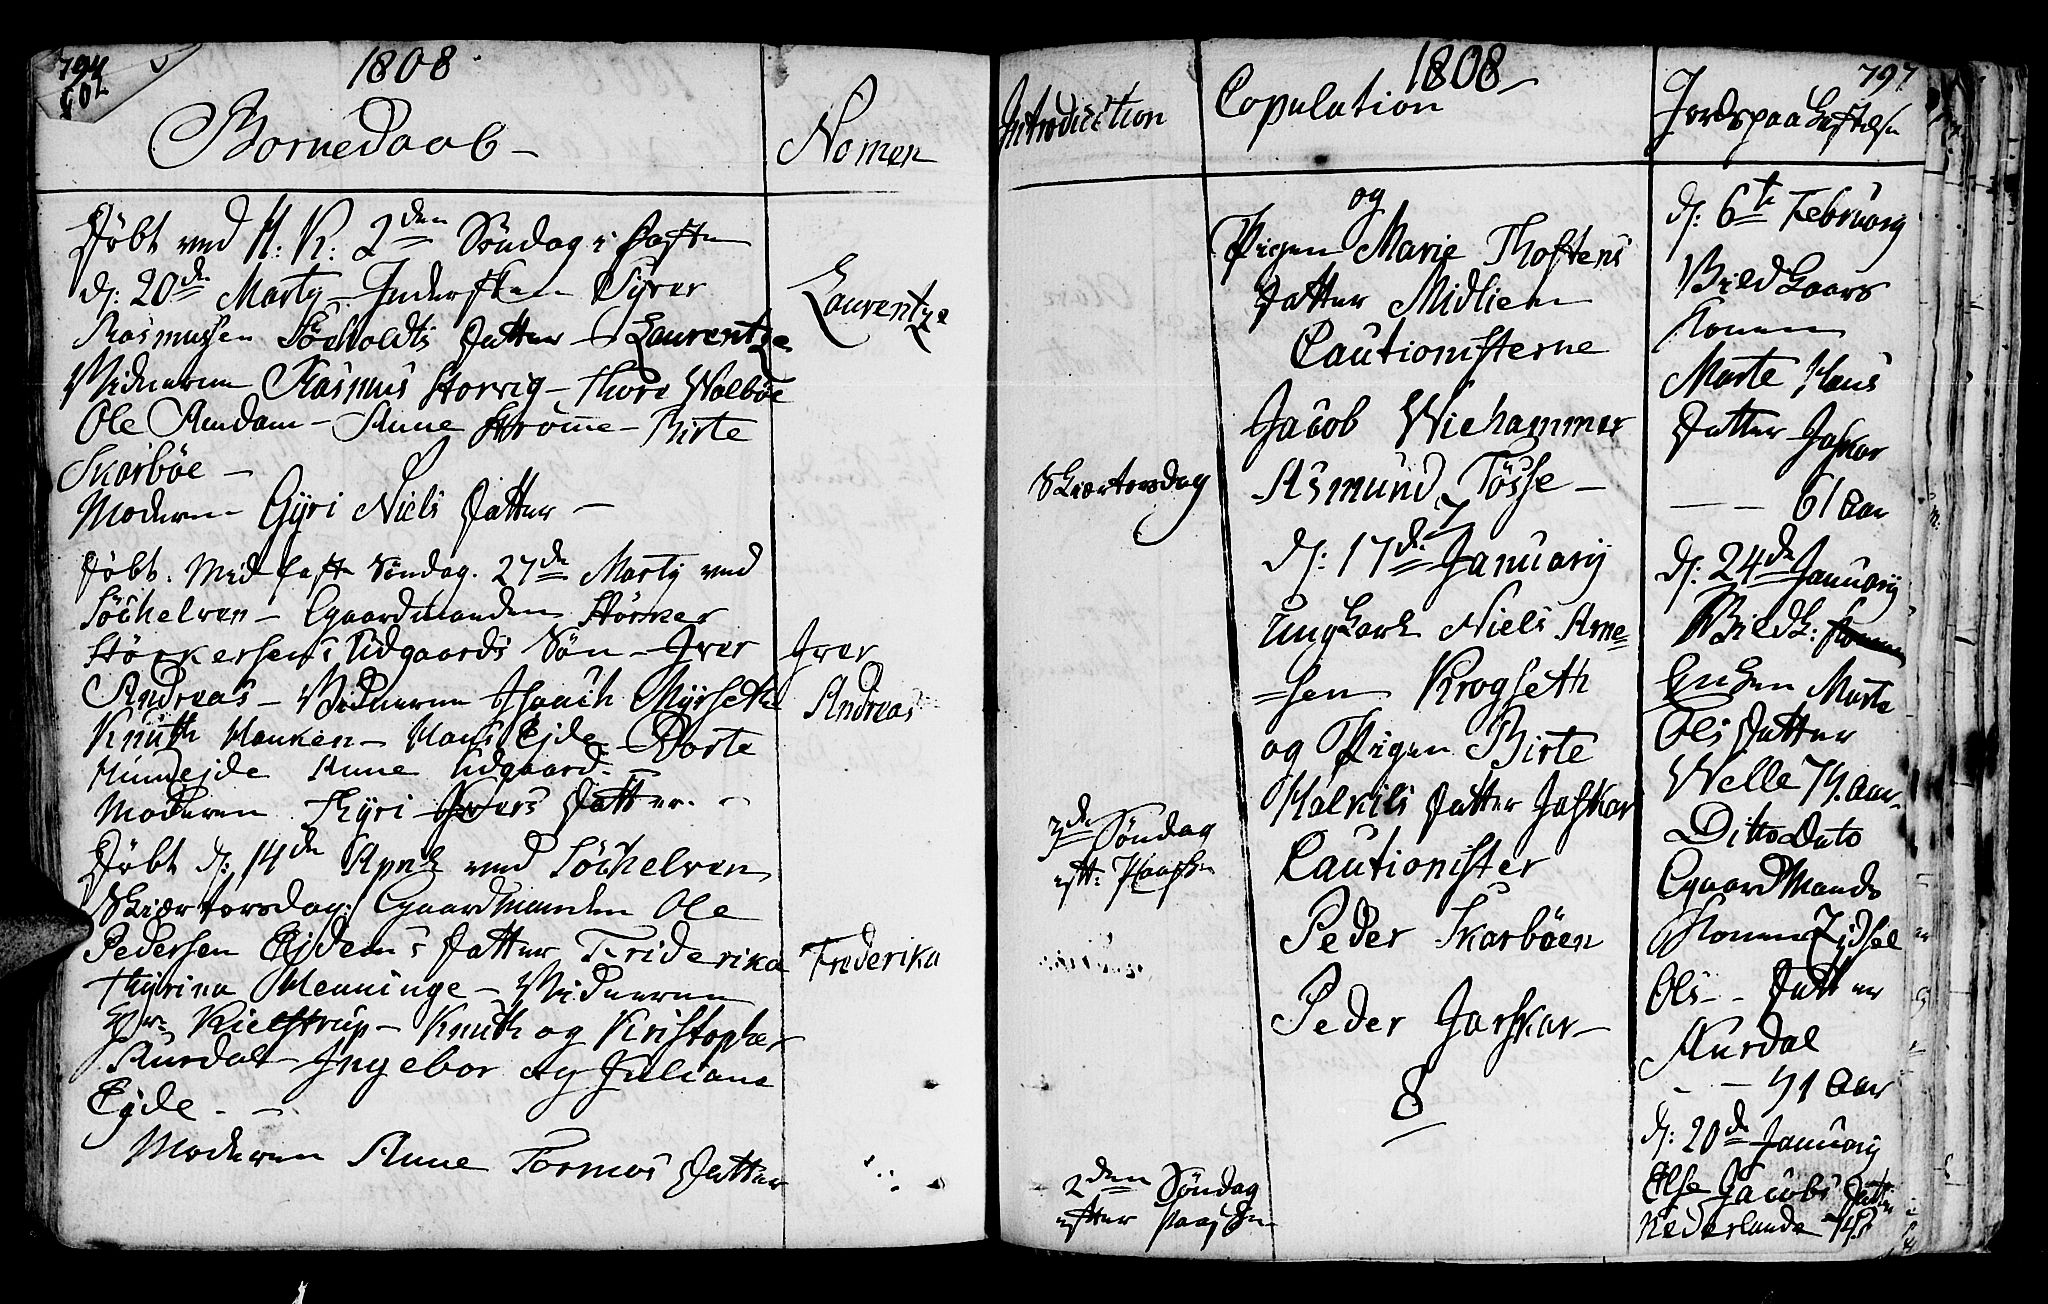 794
1808
Børnedaab -
Nomen
Døbt ved H: K: 2den Søndag i Faste
d: 20de Martÿ Inderst Sÿver
Rasmussen Søeholdts Datter - Laurentze
Vidnerne Rasmus Storvig - Thore Walbøe
Ole Amdam - Anne Strømme - Birte
Skarbøe -
Moderen Gÿri Niels Datter -
Laurentze
Døbt. Midfaste Søndag. 27de Martÿ ved
Søchelven - Gaardmanden Størker
Størkersens Udgaards Søn - Iver
Andreas - Vidnerne Isaach Mÿrseth
Knuth Hanken - Hans Ejde - Dorte
Anne Udgaard. -
Moderen Gÿri Ivers Datter. -
Iver
Andreas
Døbt d: 14de April ved Søchelven
Skiærtorsdag: Gaardmanden Ole
Pedersen Ejdems Datter Friderika
Thÿrina Menninge - Vidnerne
Hr. Kielstrup - Knuth og Kristopher
Aurdal - Ingebor og Juliane
Ejde. -
Moderen Anne Tormos Datter
Frederika
Introduction
Skiærtorsdag
3de Søndag
eft: Paaske
2den Søndag
efter Paaske
1808
Copulation
og
Pigen Marie Thostens
Datter Midliem
Cautionisterne
Jacob Wiehammer
Asmund Tøsse -
7
d: 17de Januarÿ
Ungkarl Niels Arne-
-sen Krogseth
og Pigen Birte
Halkils Datter Jaskar
Cautionister
Peder Skarbøen
Peder Jarskar -
8
797
Jordspaakastelse
d: 6te Februarÿ
Bield Laars
Konen
Marte Hans
Datter Jaskar
- - 61 Aar
d: 24de Januarÿ
Bield L:
Enken Marte
Ols Datter
Welle 74. Aar -
Ditto Dato
Gaardmands
Konen Zidsel
Ols - Datter
Aurdal
- - 71 Aar
d: 20de Januarÿ
Else Jacobs Datter
Nederlande